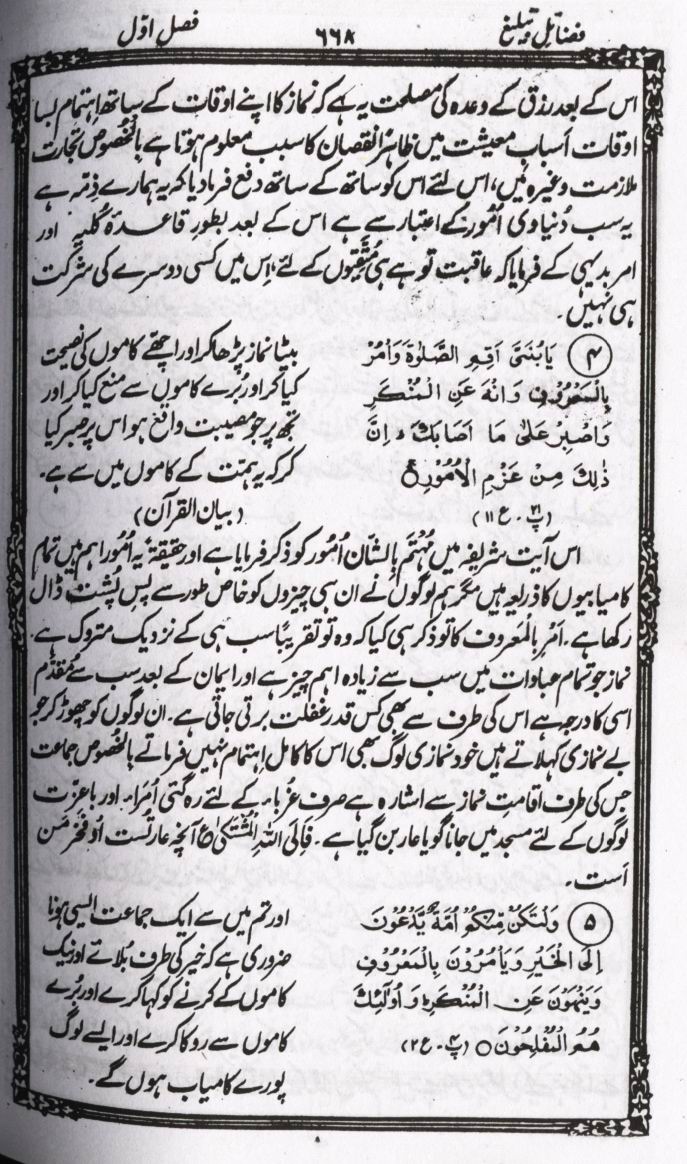 فضائل تبلیغ ۶۶۸ فصل اوّل
اس کے بعد رزق کے وعدہ کی مصلحت یہ ہے کہ نماز کا اپنے اوقات کے ساتھ اہتمام بسا
اوقات اسبابِ معیشت میں ظاہراً نقصان کا سبب معلوم ہوتا ہے بالخصوص تجارت
ملازمت وغیرہ میں، اس لئے اس کو ساتھ کے ساتھ دفع فرما دیا کہ یہ ہمارے ذمّہ ہے
یہ سب دُنیاوی اُمُور کے اعتبار سے ہے اس کے بعد بطور قاعدۂ کُلیہ اور
امر بدیہی کے فرمایا کہ عاقبت تو ہے ہی مُتّقیوں کے لئے، اس میں کسی دوسرے کی شرکت
ہی نہیں،
④ يٰبُنَيَّ اَقِمِ الصَّلٰوةَ وَأْمُرْ
بِالْمَعْرُوْفِ وَانْهَ عَنِ الْمُنْكَرِ
وَاصْبِرْ عَلٰى مَا اَصَابَكَ ؕ اِنَّ
ذٰلِكَ مِنْ عَزْمِ الْاُمُوْرِ ○
(پ ۲۱ ۔ ع ۱۱)
بیٹا نماز پڑھا کر اور اچھے کاموں کی نصیحت
کیا کر اور بُرے کاموں سے منع کیا کر اور
تجھ پر جو مصیبت واقع ہو اس پر صبر کیا
کر کہ یہ ہمّت کے کاموں میں سے ہے۔
(بیان القرآن)
اس آیت شریفہ میں مُہْتَم بِالشّان اُمُور کو ذکر فرمایا ہے اور حقیقۃً یہ اُمُور اہم ہیں تمام
کامیابیوں کا ذریعہ ہیں مگر ہم لوگوں نے ان ہی چیزوں کو خاص طور سے پس پُشت ڈال
رکھا ہے۔ امر بالمعروف کا تو ذکر ہی کیا کہ وہ تو تقریباً سب ہی کے نزدیک متروک ہے۔
نماز جو تمام عبادات میں سب سے زیادہ اہم چیز ہے اور ایمان کے بعد سب سے مُقدّم
اسی کا درجہ ہے اس کی طرف سے بھی کس قدر غفلت برتی جاتی ہے۔ ان لوگوں کو چھوڑ کر جو
بے نمازی کہلاتے ہیں خود نمازی لوگ بھی اس کا کامل اہتمام نہیں فرماتے بالخصوص جماعت
جس کی طرف اقامتِ نماز سے اشارہ ہے صرف غُرباء کے لئے رہ گئی اُمَراء اور باعزت
لوگوں کے لئے مسجد میں جانا گویا عار بن گیا ہے۔ فَاِلَی اللّٰہِ الْمُشْتَکٰی ع آنچہ عارِ تُست اُو فخرِ مَن
اَست۔
⑤ وَلْتَكُنْ مِّنْكُمْ اُمَّةٌ يَّدْعُوْنَ
اِلَى الْخَيْرِ وَيَأْمُرُوْنَ بِالْمَعْرُوْفِ
وَيَنْهَوْنَ عَنِ الْمُنْكَرِ ؕ وَاُولٰٓئِكَ
هُمُ الْمُفْلِحُوْنَ ○ (پ ۴ ۔ ع ۲)
اور تم میں سے ایک جماعت ایسی ہونا
ضروری ہے کہ خیر کی طرف بُلائے اور نیک
کاموں کے کرنے کو کہا کرے اور بُرے
کاموں سے روکا کرے اور ایسے لوگ
پورے کامیاب ہوں گے۔